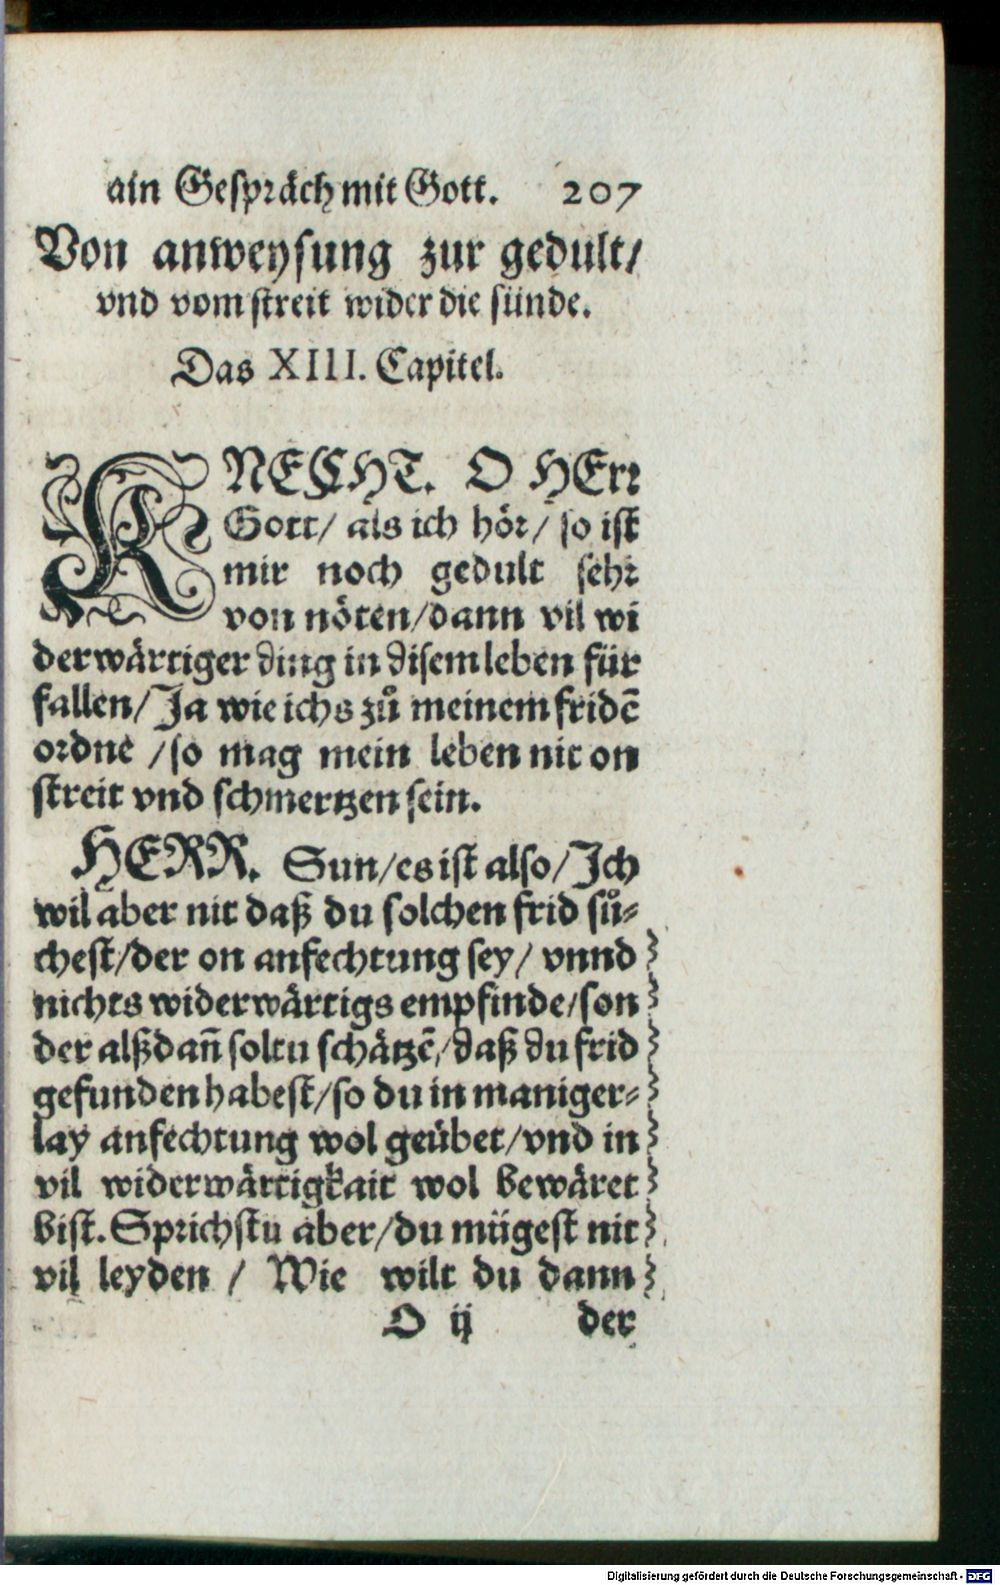 ain Gespräch mit Gott. 207
Von anweysung zur gedult/
vnd vom streit wider die sünde.
Das XIII. Capitel.
KNECHT. O HErr
Gott/ als ich hör/ so ist
mir noch gedult sehr
von nöten/dann vil wi
derwärtiger ding in disem leben für
fallen/Ja wie ichs zů meinem fridē
ordne /so mag mein leben nit on
streit vnd schmertzen sein.
HERR. Sun/es ist also/Ich
wil aber nit daß du solchen frid sů⸗
chest/der on anfechtung sey/ vnnd
nichts widerwärtigs empfinde/son
der alßdañ soltu schätzē/daß du frid
gefunden habest/so du in maniger⸗
lay anfechtung wol geübet/vnd in
vil widerwärtigkait wol bewäret
bist. Sprichstu aber/du mügest nit
vil leyden / Wie wilt du dann
O ij der
Digitalisierung gefördert durch die Deutsche Forschungsgemeinschaft - DFG